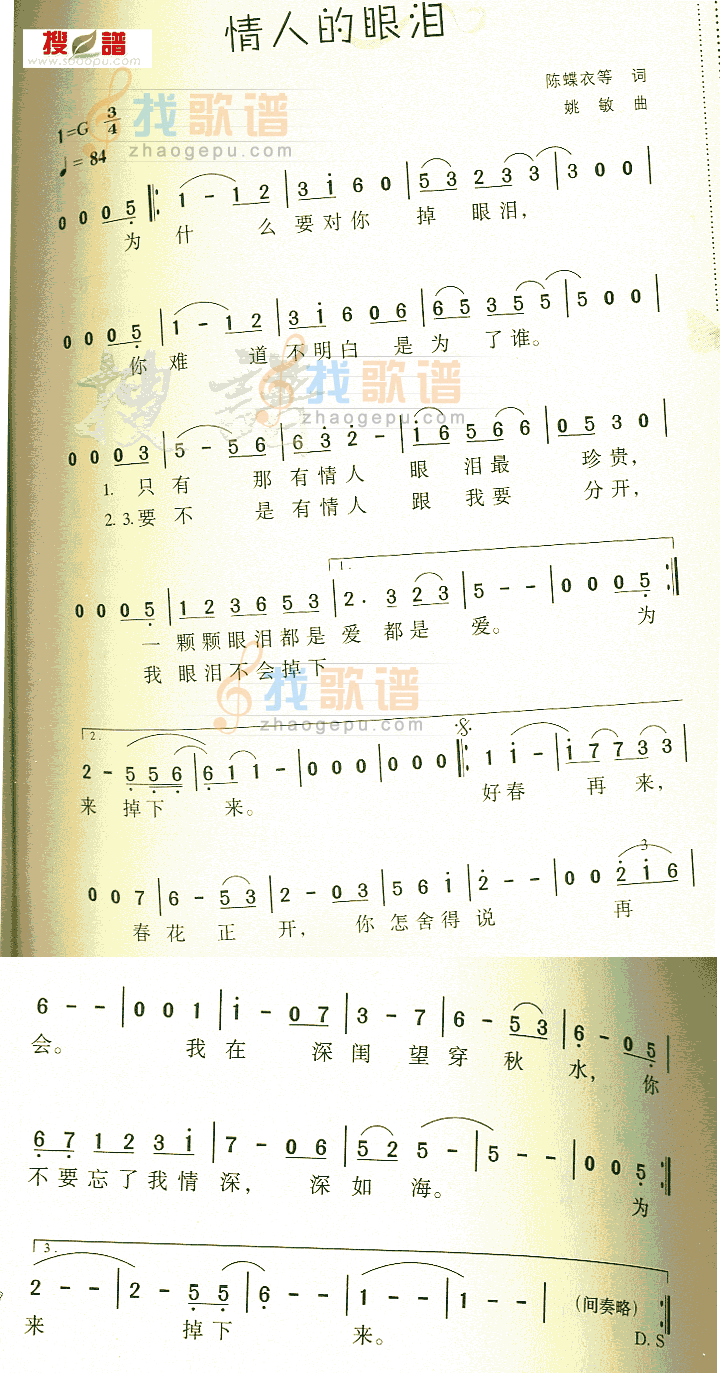 搜谱
www.sooopu.com
情人的眼泪
陈蝶衣等 词
姚敏 曲
找歌谱
zhaogepu.com
1=G 3/4
♩=84
0 0 0 5 ‖: 1 - 1 2 | 3 i 6 0 | 5 3 2 3 3 | 3 0 0 |
为 什 么 要 对 你 掉 眼 泪,
0 0 0 5 | 1 - 1 2 | 3 i 6 0 6 | 6 5 3 5 5 | 5 0 0 |
你 难 道 不 明 白 是 为 了 谁。
找歌谱
zhaogepu.com
0 0 0 3 | 5 - 5 6 | 6 3 2 - | i 6 5 6 6 | 0 5 3 0 |
1. 只 有 那 有 情 人 眼 泪 最 珍 贵,
2. 3. 要 不 是 有 情 人 跟 我 要 分 开,
1.
0 0 0 5 | 1 2 3 6 5 3 | 2 . 3 2 3 | 5 - - | 0 0 0 5 :‖
一 颗 颗 眼 泪 都 是 爱 都 是 爱。 为
我 眼 泪 不 会 掉 下
找歌谱
zhaogepu.com
2.
2 - 5 5 6 | 6 1 1 - | 0 0 0 | 0 0 0 ‖: 1 i - | i 7 7 3 3 |
来 掉 下 来。 好 春 再 来,
3
0 0 7 | 6 - 5 3 | 2 - 0 3 | 5 6 i | 2 - - | 0 0 2 i 6 |
春 花 正 开, 你 怎 舍 得 说 再
6 - - | 0 0 1 | i - 0 7 | 3 - 7 | 6 - 5 3 | 6 - 0 5 |
会。 我 在 深 闺 望 穿 秋 水, 你
6 7 1 2 3 i | 7 - 0 6 | 5 2 5 - | 5 - - | 0 0 5 :‖
不 要 忘 了 我 情 深, 深 如 海。 为
3.
2 - - | 2 - 5 5 | 6 - - | 1 - - | 1 - - | (间奏略) :‖
来 掉 下 来。 D. S